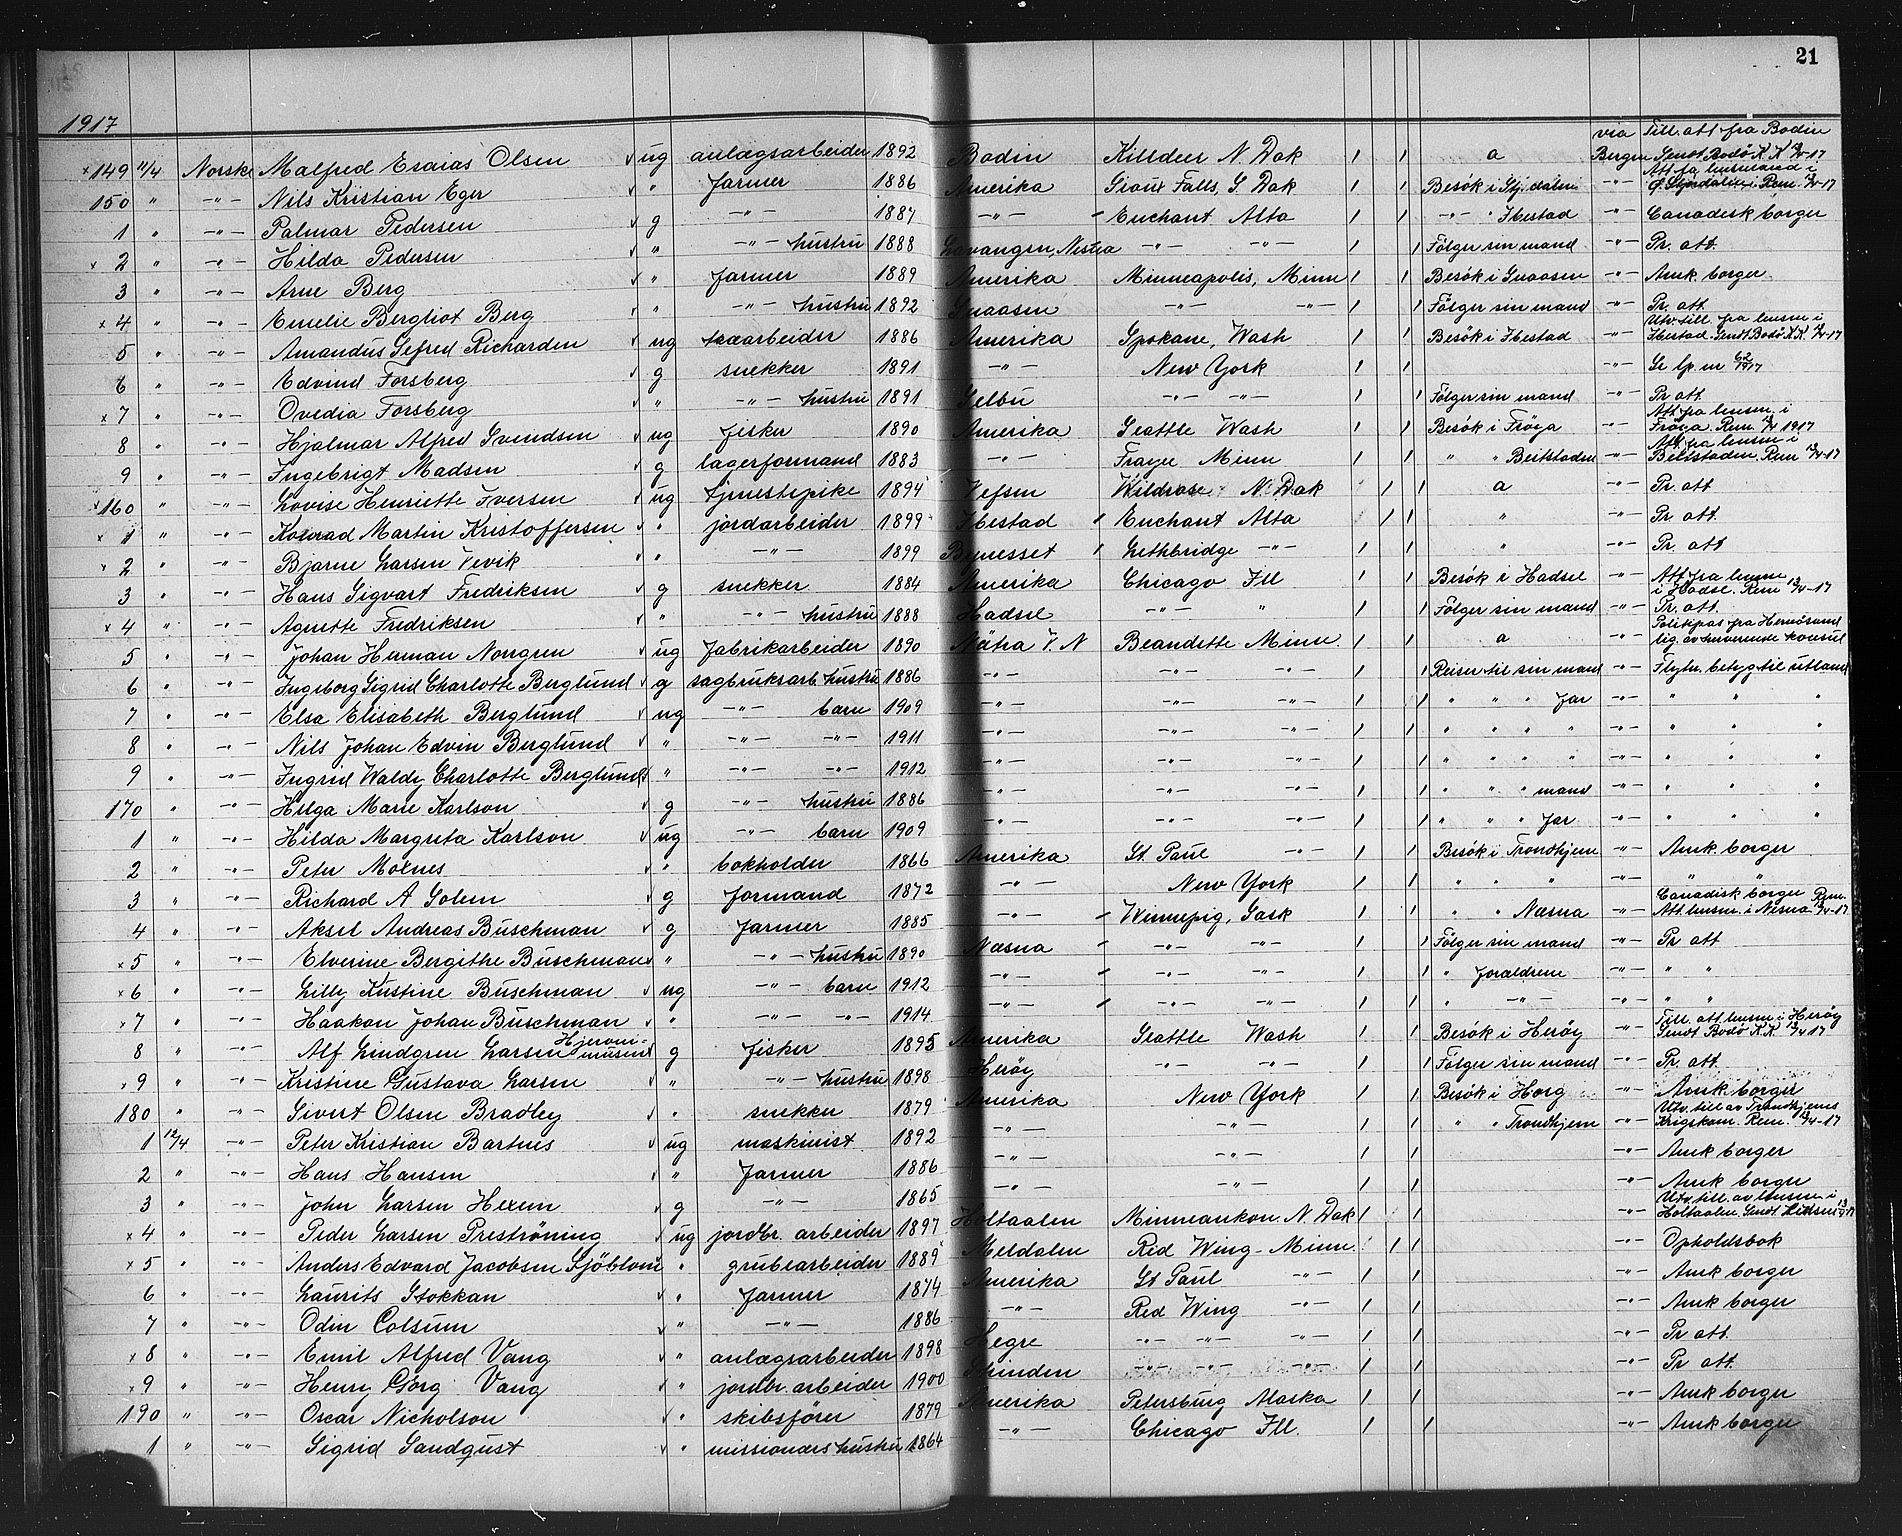 21
1917
×149 11/4 Norske Malfred Esaias Olsen ug anlægsarbeider 1892 Bodin Killdeer N. Dak a via Bergen Till. att fra Bodin Sendt Bodö K.K.
150 " -"- Nils Kristian Eger " farmer 1886 Amerika Sioux Falls, S. Dak Besök i Stj.dalen -"- Att fra lensmand i Ö. Stjördalen. Rem.
1 " -"- Palmar Pedersen g -"- 1887 -"- Enchant Alta -"- " Ibestad -"- Canadisk borger
× 2 " -"- Hilda Pedersen " -"- hustru 1888 Lavangen, Nestra -"- -"- Fölger sin mand -"- Pr. att.
3 " -"- Arne Berg " farmer 1889 Amerika Minneapolis, Minn Besök i Snaasen -"- Amk. borger
×4 " -"- Emelie Bergliot Berg " -"- hustru 1892 Snaasen -"- -"- Fölger sin mand -"- Pr. att.
5 " -"- Amandus Sefred Richardsen ug arbeider 1886 Amerika Spokane, Wash Besök i Ibestad -"- Utv. till. fra lensm i Ibestad. Sendt Bodö K.K.
6 " -"- Edvind Forsberg g snekker 1891 -"- New York -"- Se lp. nr 62/1917
×7 " -"- Ovedia Forsberg " -"- hustru 1891 Selbu -"- -"- Fölger sin mand -"- Pr. att.
8 " -"- Hjalmar Alfred Svendsen ug fisker 1890 Amerika Seattle Wash Besök i Fröya -"- Att. fra lensm. i Fröya. Rem. 1917
9 " -"- Ingebrigt Madsen g lagerformand 1883 -"- Frazee Minn " " Beitstaden -"- Att. fra lensm i Beitstaden. Rem
×160 " -"- Lovise Henriette Iversen ug tjenestepike 1894 Vefsen Wildrose N. Dak a -"- Pr. att
× 1 " -"- Konrad Martin Kristoffersen " jordarbeider 1899 Ibestad Enchant Alta " -"- Pr. att.
× 2 " -"- Bjarne Larsen Vevik " -"- 1899 Lethbridge -"- " -"- Pr. att
3 " -"- Hans Sigvart Fredriksen g snekker 1884 Amerika Chicago Ill Besök i Hadsel -"- Att fra lensm i Hadsel. Rem
×4 " -"- Agnette Fredriksen " -"- hustru 1888 Hadsel -"- " Fölger sin mand -"- Pr. att.
5 " -"- Johan Herman Norrgren ug fabrikarbeider 1890 Nätra V. N Beaudette Minn. a -"- Politipas fra Hernösand
6 " -"- Ingeborg Sigrid Charlotte Berglund g sagbruksarb. hustru 1886 -"- -"- -"- Reiser til sin mand -"- Flytn. betyg til utland
7 " -"- Elsa Elisabeth Berglund ug -"- barn 1909 -"- -"- -"- " " " far -"- " " "
8 " -"- Nils Johan Edvin Berglund " -"- -"- 1911 -"- -"- -"- " " " " -"- " " "
9 " -"- Ingrid Waldy Charlotte Berglund " -"- -"- 1912 -"- -"- -"- " " " " -"- " " "
170 " -"- Helga Marie Karlson g -"- hustru 1886 -"- -"- -"- " " " mand -"- " " "
1 " -"- Hilda Margreta Karlson ug -"- barn 1909 -"- -"- -"- " " " far -"- " " "
2 " -"- Peter Molnes " bokholder 1866 Amerika St. Paul -"- Besök i Trondhjem -"- Amk. borger
3 " -"- Richard A Solem g formand 1872 -"- New York " " " -"- " "
4 " -"- Aksel Andreas Buschman g farmer 1885 -"- Winnepig, Sask " " Næsna -"- Canadisk borger Rem. Att lensm. i Nesna
×5 " -"- Elverine Bergithe Buschman " -"- hustru 1890 Næsna -"- -"- Fölger sin mand -"- Pr att
×6 " -"- Lilly Kristine Buschman ug -"- barn 1912 -"- -"- -"- " forældrene -"- " "
×7 " -"- Haakon Johan Buschman " -"- -"- 1914 -"- -"- -"- " -"- -"- " "
8 " -"- Alf Lindgren Larsen Hjeronimusen g fisker 1895 Amerika Seattle Wash Besök i Heröy -"- Till. att lensm i Heröy Sendt Bodö K.K.
×9 " -"- Kristine Gustava Larsen " -"- hustru 1898 Heröy -"- -"- Fölger sin mand -"- Pr. att.
180 " -"- Sivert Olsen Bradley " snekker 1879 Amerika New York Besök i Horg -"- Amk borger
1 12/4 -"- Peter Kristian Bartnes ug maskinist 1892 -"- -"- " " Trondhjem -"- Utv. till av Trondhjems Krigskom. Rem.
2 " -"- Hans Hansen " farmer 1886 -"- -"- -"- Amk borger
3 " -"- John Larsen Hexem g -"- 1865 -"- -"- -"- Amk borger
×4 " -"- Peder Larsen Preströning ug jordbr. arbeider 1897 Holtaalen Minneaukon. N. Dak -"- Utv. till. av lensm i Holtaalen. Sendt
×5 " -"- Anders Edvard Jacobsen Sjöblom " grubearbeider 1889 Meldalen Red Wing - Minn. -"- Opholdsbok
6 " -"- Laurits Stokkan " farmer 1874 Amerika St Paul -"- -"- Amk borger
7 " -"- Odin Colsum " -"- 1886 -"- Red Wing -"- -"- Amk borger
×8 " -"- Emil Alfred Vang " anlægsarbeider 1898 Hegre -"- -"- -"- -"- Pr att.
×9 " -"- Henry Georg Vang " jordbr. arbeider 1900 -"- -"- -"- -"- Pr att.
190 " -"- Oscar Nicholson " skibsförer 1879 Amerika Petersburg Alaska -"- Amk borger
1 " -"- Sigrid Sandqust " missionærs hustru 1864 -"- Chicago Ill. -"- Amk borger